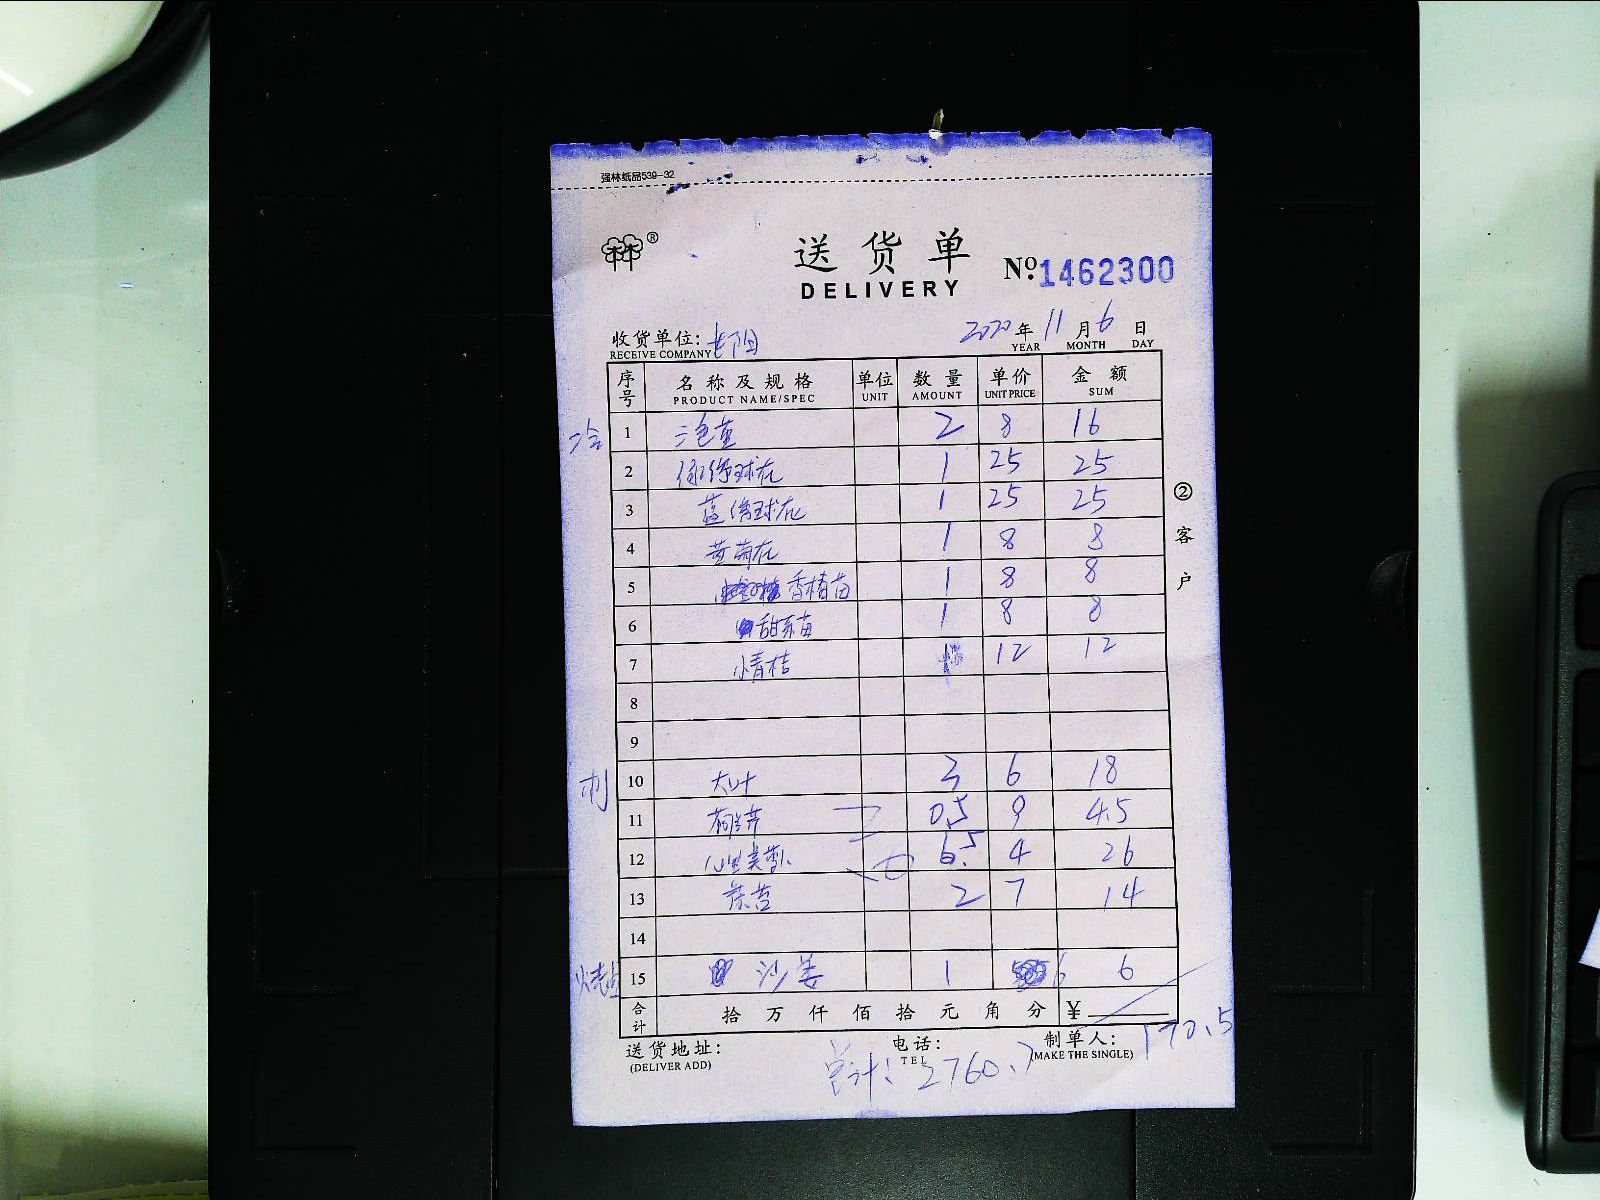 强林纸品539-32
®
送货单
DELIVERY
№1462300
收货单位:长阳
RECEIVE COMPANY
2020年11月6日
YEAR MONTH DAY
序号 名称及规格 单位 数量 单价 金额
PRODUCT NAME/SPEC UNIT AMOUNT UNIT PRICE SUM
冷 1 三色堇 2 8 16
2 绣球花 1 25 25
3 蓝绣球花 1 25 25
4 黄菊花 1 8 8
5 香椿苗 1 8 8
6 甜菜苗 1 8 8
7 小青桔 1 12 12
8
9
10 大叶 3 6 18
11 荷兰芹 0.5 9 4.5
12 心里美萝卜 6.5 4 26
13 2 7 14
14
15 沙姜 1 6 6
合计 拾万仟佰拾元角分 ¥
170.5
②客户
送货地址:
(DELIVER ADD)
电话:
TEL
制单人:
(MAKE THE SINGLE)
总计:2760.7